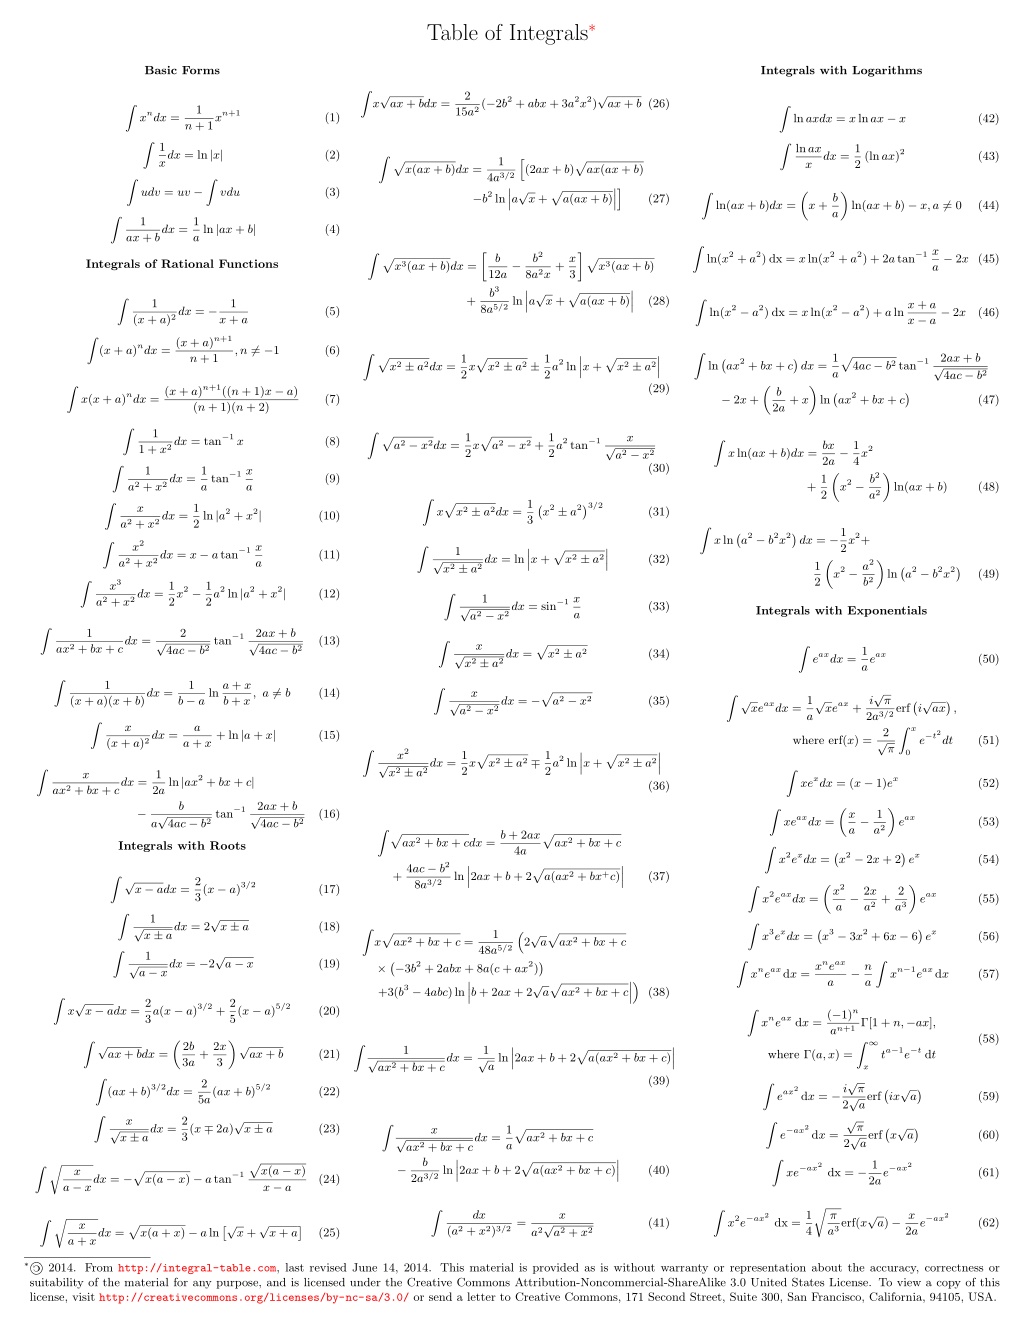 Table of Integrals*
Basic Forms
∫ xⁿdx = 1/(n+1) xⁿ⁺¹ (1)
∫ 1/x dx = ln |x| (2)
∫ udv = uv − ∫ vdu (3)
∫ 1/(ax + b) dx = 1/a ln |ax + b| (4)
Integrals of Rational Functions
∫ 1/(x + a)² dx = − 1/(x + a) (5)
∫ (x + a)ⁿdx = (x + a)ⁿ⁺¹/(n + 1), n ≠ −1 (6)
∫ x(x + a)ⁿdx = (x + a)ⁿ⁺¹((n + 1)x − a)/((n + 1)(n + 2)) (7)
∫ 1/(1 + x²) dx = tan⁻¹ x (8)
∫ 1/(a² + x²) dx = 1/a tan⁻¹ x/a (9)
∫ x/(a² + x²) dx = 1/2 ln |a² + x²| (10)
∫ x²/(a² + x²) dx = x − a tan⁻¹ x/a (11)
∫ x³/(a² + x²) dx = 1/2 x² − 1/2 a² ln |a² + x²| (12)
∫ 1/(ax² + bx + c) dx = 2/√(4ac − b²) tan⁻¹ (2ax + b)/√(4ac − b²) (13)
∫ 1/((x + a)(x + b)) dx = 1/(b − a) ln (a + x)/(b + x), a ≠ b (14)
∫ x/(x + a)² dx = a/(a + x) + ln |a + x| (15)
∫ x/(ax² + bx + c) dx = 1/(2a) ln |ax² + bx + c|
− b/(a√(4ac − b²)) tan⁻¹ (2ax + b)/√(4ac − b²) (16)
Integrals with Roots
∫ √(x − a)dx = 2/3 (x − a)^(3/2) (17)
∫ 1/√(x ± a) dx = 2√(x ± a) (18)
∫ 1/√(a − x) dx = −2√(a − x) (19)
∫ x√(x − a)dx = 2/3 a(x − a)^(3/2) + 2/5 (x − a)^(5/2) (20)
∫ √(ax + b)dx = (2b/3a + 2x/3) √(ax + b) (21)
∫ (ax + b)^(3/2)dx = 2/(5a) (ax + b)^(5/2) (22)
∫ x/√(x ± a) dx = 2/3 (x ∓ 2a)√(x ± a) (23)
∫ √(x/(a − x)) dx = −√(x(a − x)) − a tan⁻¹ √(x(a − x))/(x − a) (24)
∫ √(x/(a + x)) dx = √(x(a + x)) − a ln [√x + √(x + a)] (25)
∫ x√(ax + b)dx = 2/(15a²) (−2b² + abx + 3a²x²)√(ax + b) (26)
∫ √(x(ax + b))dx = 1/(4a^(3/2)) [(2ax + b)√(ax(ax + b))
−b² ln |a√x + √(a(ax + b))|] (27)
∫ √(x³(ax + b))dx = [b/(12a) − b²/(8a²x) + x/3] √(x³(ax + b))
+ b³/(8a^(5/2)) ln |a√x + √(a(ax + b))| (28)
∫ √(x² ± a²)dx = 1/2 x√(x² ± a²) ± 1/2 a² ln |x + √(x² ± a²)|
(29)
∫ √(a² − x²)dx = 1/2 x√(a² − x²) + 1/2 a² tan⁻¹ x/√(a² − x²)
(30)
∫ x√(x² ± a²)dx = 1/3 (x² ± a²)^(3/2) (31)
∫ 1/√(x² ± a²) dx = ln |x + √(x² ± a²)| (32)
∫ 1/√(a² − x²) dx = sin⁻¹ x/a (33)
∫ x/√(x² ± a²) dx = √(x² ± a²) (34)
∫ x/√(a² − x²) dx = −√(a² − x²) (35)
∫ x²/√(x² ± a²) dx = 1/2 x√(x² ± a²) ∓ 1/2 a² ln |x + √(x² ± a²)|
(36)
∫ √(ax² + bx + c)dx = (b + 2ax)/(4a) √(ax² + bx + c)
+ (4ac − b²)/(8a^(3/2)) ln |2ax + b + 2√(a(ax² + bx⁺c))| (37)
∫ x√(ax² + bx + c) = 1/(48a^(5/2)) (2√a√(ax² + bx + c)
× (−3b² + 2abx + 8a(c + ax²))
+3(b³ − 4abc) ln |b + 2ax + 2√a√(ax² + bx + c)|) (38)
∫ 1/√(ax² + bx + c) dx = 1/√a ln |2ax + b + 2√(a(ax² + bx + c))|
(39)
∫ x/√(ax² + bx + c) dx = 1/a √(ax² + bx + c)
− b/(2a^(3/2)) ln |2ax + b + 2√(a(ax² + bx + c))| (40)
∫ dx/(a² + x²)^(3/2) = x/(a²√(a² + x²)) (41)
Integrals with Logarithms
∫ ln axdx = x ln ax − x (42)
∫ ln ax/x dx = 1/2 (ln ax)² (43)
∫ ln(ax + b)dx = (x + b/a) ln(ax + b) − x, a ≠ 0 (44)
∫ ln(x² + a²) dx = x ln(x² + a²) + 2a tan⁻¹ x/a − 2x (45)
∫ ln(x² − a²) dx = x ln(x² − a²) + a ln (x + a)/(x − a) − 2x (46)
∫ ln (ax² + bx + c) dx = 1/a √(4ac − b²) tan⁻¹ (2ax + b)/√(4ac − b²)
− 2x + (b/2a + x) ln (ax² + bx + c) (47)
∫ x ln(ax + b)dx = bx/2a − 1/4 x²
+ 1/2 (x² − b²/a²) ln(ax + b) (48)
∫ x ln (a² − b²x²) dx = −1/2 x²+
1/2 (x² − a²/b²) ln (a² − b²x²) (49)
Integrals with Exponentials
∫ e^(ax)dx = 1/a e^(ax) (50)
∫ √x e^(ax)dx = 1/a √x e^(ax) + i√π/(2a^(3/2)) erf (i√(ax)),
where erf(x) = 2/√π ∫₀ˣ e^(−t²)dt (51)
∫ xeˣdx = (x − 1)eˣ (52)
∫ xe^(ax)dx = (x/a − 1/a²) e^(ax) (53)
∫ x²eˣdx = (x² − 2x + 2) eˣ (54)
∫ x²e^(ax)dx = (x²/a − 2x/a² + 2/a³) e^(ax) (55)
∫ x³eˣdx = (x³ − 3x² + 6x − 6) eˣ (56)
∫ xⁿe^(ax) dx = xⁿe^(ax)/a − n/a ∫ xⁿ⁻¹e^(ax) dx (57)
∫ xⁿe^(ax) dx = (−1)ⁿ/aⁿ⁺¹ Γ[1 + n, −ax],
where Γ(a, x) = ∫ₓ^∞ t^(a−1)e^(−t) dt (58)
∫ e^(ax²) dx = − i√π/(2√a) erf (ix√a) (59)
∫ e^(−ax²) dx = √π/(2√a) erf (x√a) (60)
∫ xe^(−ax²) dx = − 1/(2a) e^(−ax²) (61)
∫ x²e^(−ax²) dx = 1/4 √(π/a³) erf(x√a) − x/(2a) e^(−ax²) (62)
*🄯 2014. From http://integral-table.com, last revised June 14, 2014. This material is provided as is without warranty or representation about the accuracy, correctness or
suitability of the material for any purpose, and is licensed under the Creative Commons Attribution-Noncommercial-ShareAlike 3.0 United States License. To view a copy of this
license, visit http://creativecommons.org/licenses/by-nc-sa/3.0/ or send a letter to Creative Commons, 171 Second Street, Suite 300, San Francisco, California, 94105, USA.